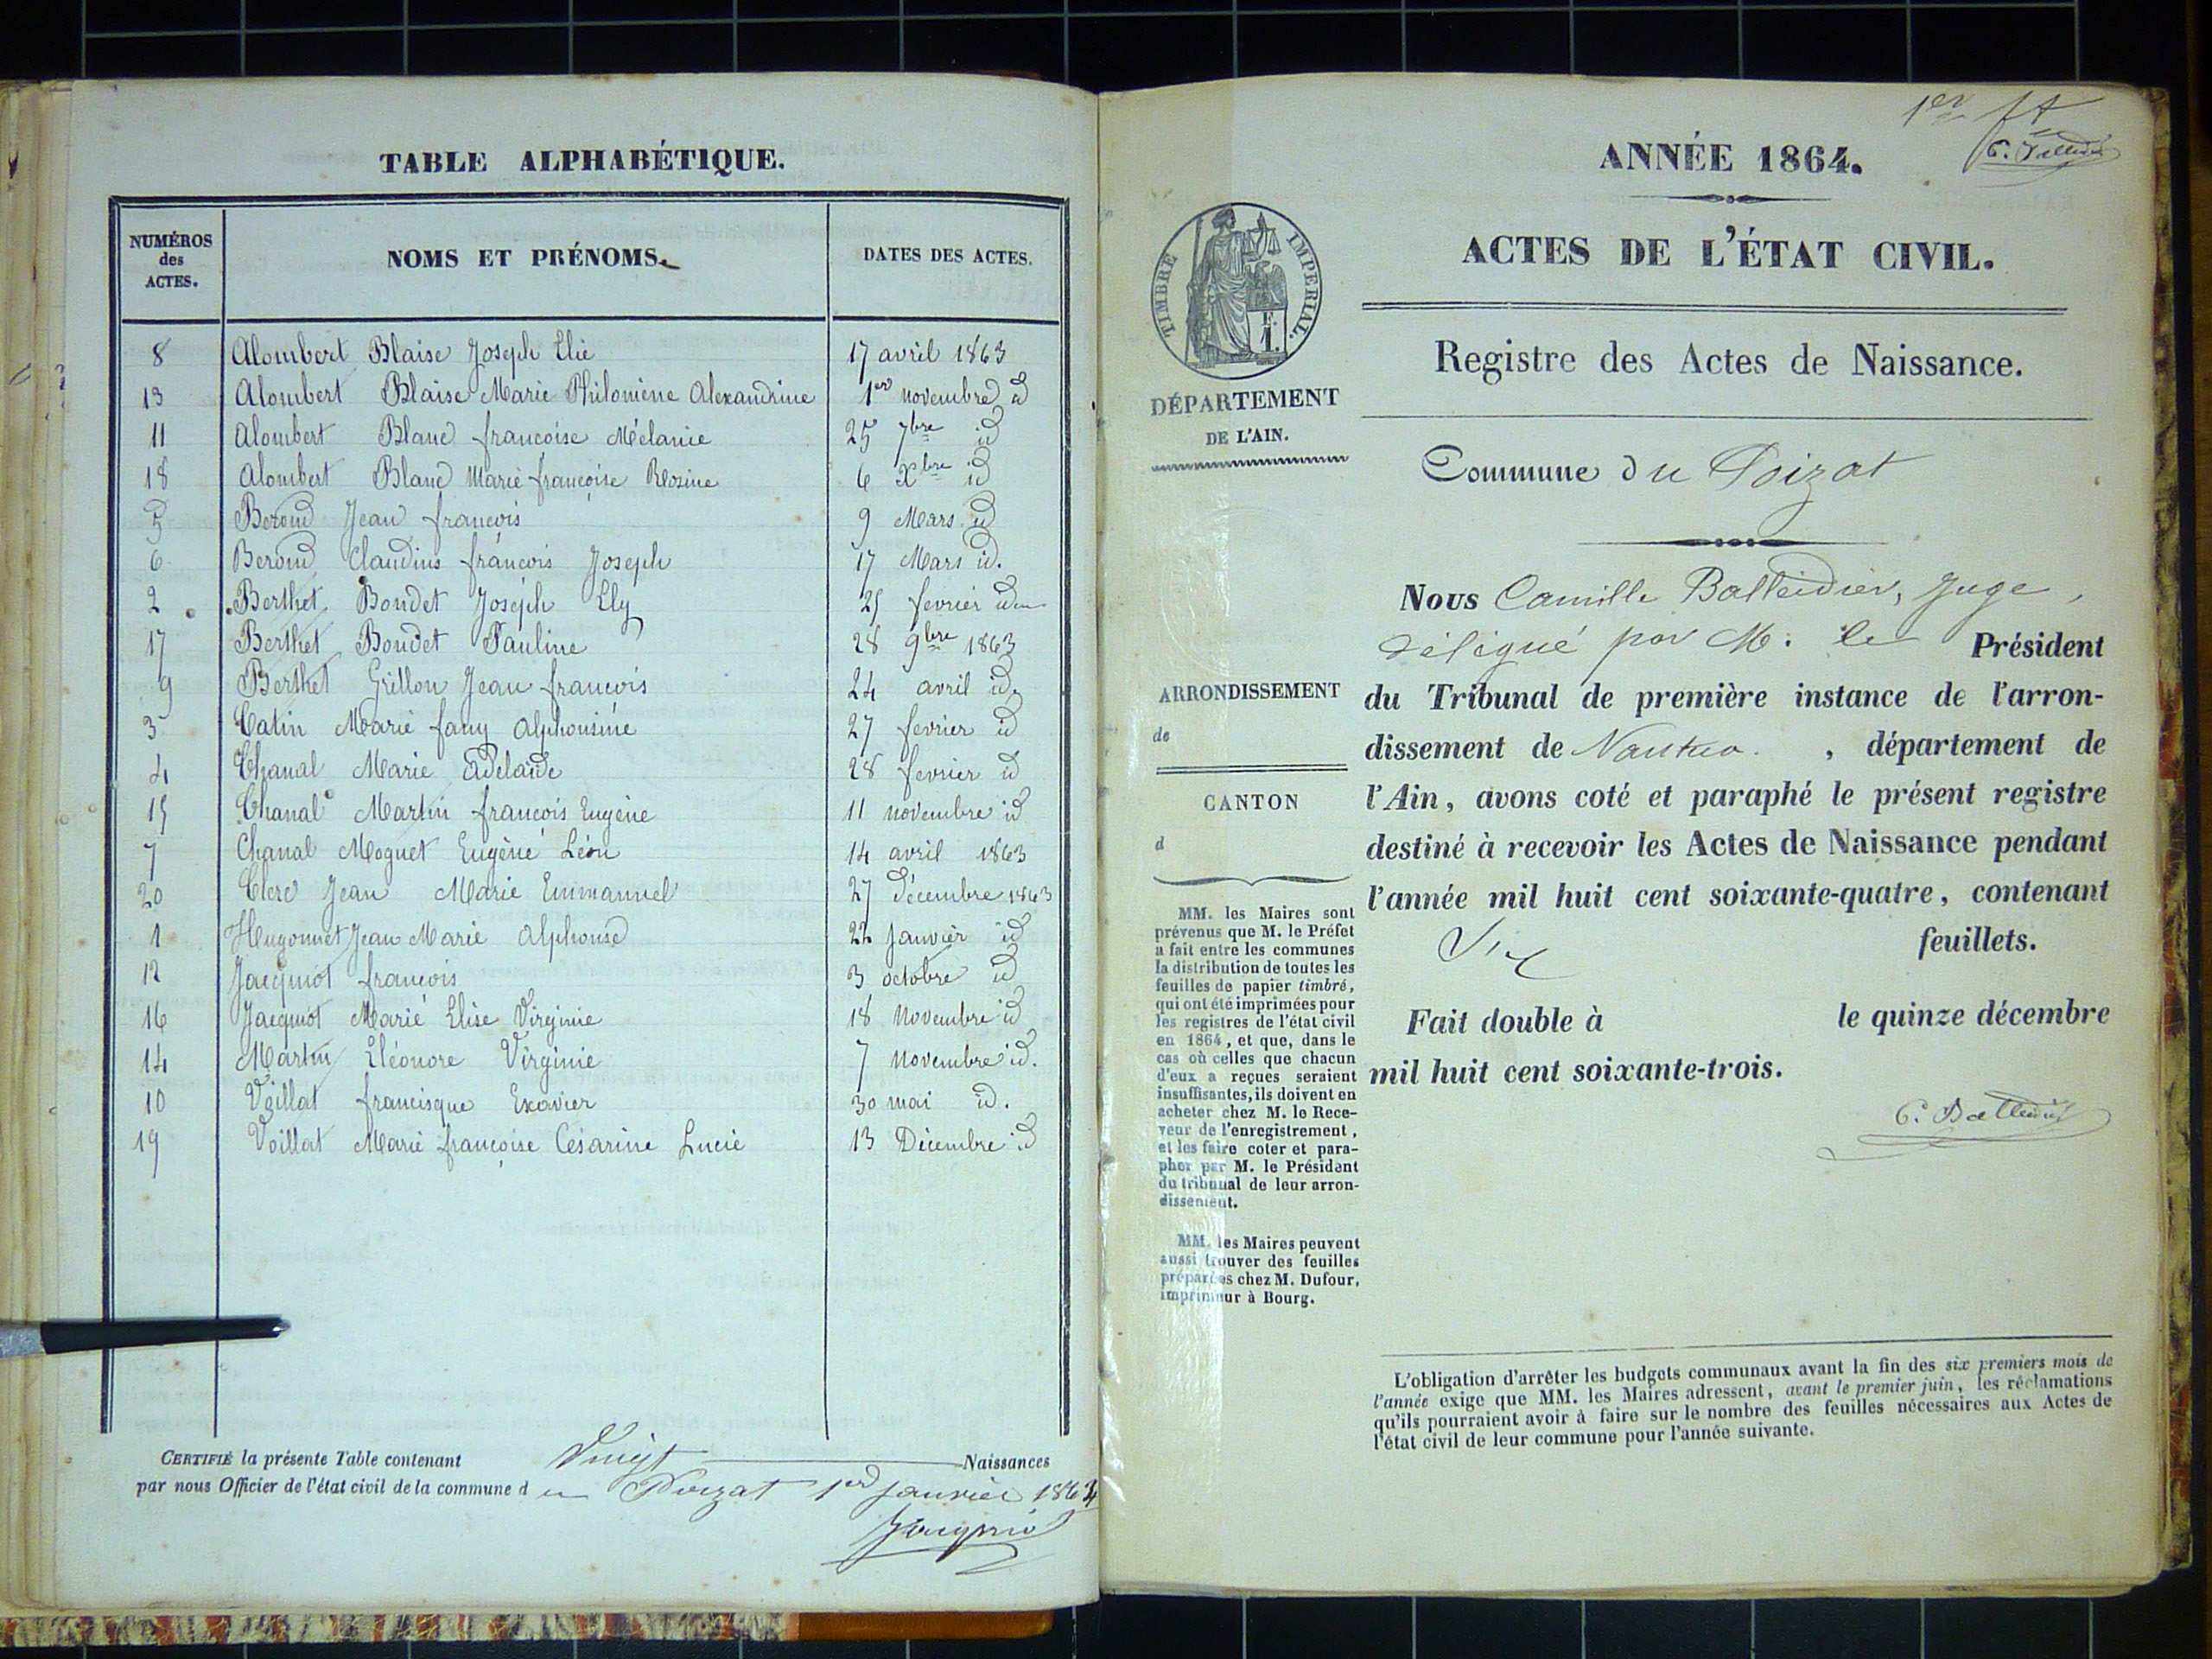 TABLE ALPHABÉTIQUE.
NUMÉROS des ACTES.
NOMS ET PRÉNOMS.
DATES DES ACTES.
8 Alombert Blaise Joseph Elie 17 avril 1863
13 Alombert Blaise Marie Philomène Alexandrine 1er novembre id
11 Alombert Blanc françoise Mélanie 25 7bre id
18 Alombert Blanc Marie françoise Rosine 6 Xbre id
5 Berond Jean françois 9 Mars id
6 Berond Claudius françois Joseph 17 Mars id.
2 Berthet Bondet Joseph Ely 25 fevrier id
17 Berthet Bondet Pauline 28 9bre 1863
9 Berthet Grillon Jean françois 24 avril id
3 Catin Marie fany Alphonsine 27 fevrier id
4 Chanal Marie Adelaide 28 fevrier id
15 Chanal Martin françois Eugène 11 novembre id
7 Chanal Moguet Eugène Léon 14 avril 1863
20 Clerc Jean Marie Emmanuel 27 décembre 1863
1 Hugonnet Jean Marie Alphonse 22 Janvier id
12 Jacquiot françois 3 octobre id
16 Jacquiot Marie Elise Virginie 18 Novembre id
14 Martin Eléonore Virginie 7 novembre id.
10 Voillat francisque Exavier 30 mai id.
19 Voillat Marie françoise Césarine Lucie 13 Décembre id
CERTIFIÉ la présente Table contenant Vingt Naissances
par nous Officier de l'état civil de la commune d u Poizat 1er Janvier 1864
1er ft
C. Balleidier
ANNÉE 1864.
ACTES DE L'ÉTAT CIVIL.
TIMBRE IMPÉRIAL.
F.
1.
Registre des Actes de Naissance.
DÉPARTEMENT
DE L'AIN.
Commune du Poizat
Nous Camille Balleidier, Juge,
délégué par M. le Président
du Tribunal de première instance de l'arron-
dissement de Nantua. , département de
l'Ain, avons coté et paraphé le présent registre
destiné à recevoir les Actes de Naissance pendant
l'année mil huit cent soixante-quatre, contenant
Six feuillets.
Fait double à le quinze décembre
mil huit cent soixante-trois.
C. Balleidier
ARRONDISSEMENT
de
CANTON
d
MM. les Maires sont
prévenus que M. le Préfet
a fait entre les communes
la distribution de toutes les
feuilles de papier timbré,
qui ont été imprimées pour
les registres de l'état civil
en 1864, et que, dans le
cas où celles que chacun
d'eux a reçues seraient
insuffisantes, ils doivent en
acheter chez M. le Rece-
veur de l'enregistrement,
et les faire coter et para-
pher par M. le Président
du tribunal de leur arron-
dissement.
MM. les Maires peuvent
aussi trouver des feuilles
préparées chez M. Dufour,
imprimeur à Bourg.
L'obligation d'arrêter les budgets communaux avant la fin des six premiers mois de
l'année exige que MM. les Maires adressent, avant le premier juin, les réclamations
qu'ils pourraient avoir à faire sur le nombre des feuilles nécessaires aux Actes de
l'état civil de leur commune pour l'année suivante.